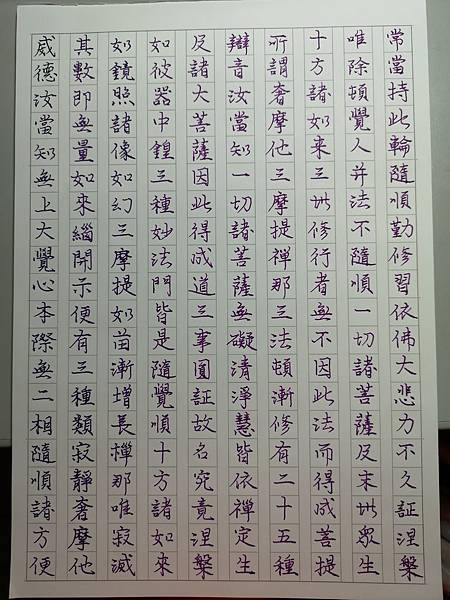 威德汝當知無上大覺心本際無二相隨順諸方便
其數即無量如來總開示便有三種類寂靜奢摩他
如鏡照諸像如幻三摩提如苗漸增長禪那唯寂滅
如彼器中鍠三種妙法門皆是隨覺順十方諸如來
及諸大菩薩因此得成道三事圓証故名究竟涅槃
辯音汝當知一切諸菩薩無礙清淨慧皆依禪定生
所謂奢摩他三摩提禪那三法頓漸修有二十五種
十方諸如來三世修行者無不因此法而得成菩提
唯除頓覺人并法不隨順一切諸菩薩及末世眾生
常當持此輪隨順勤修習依佛大悲力不久証涅槃